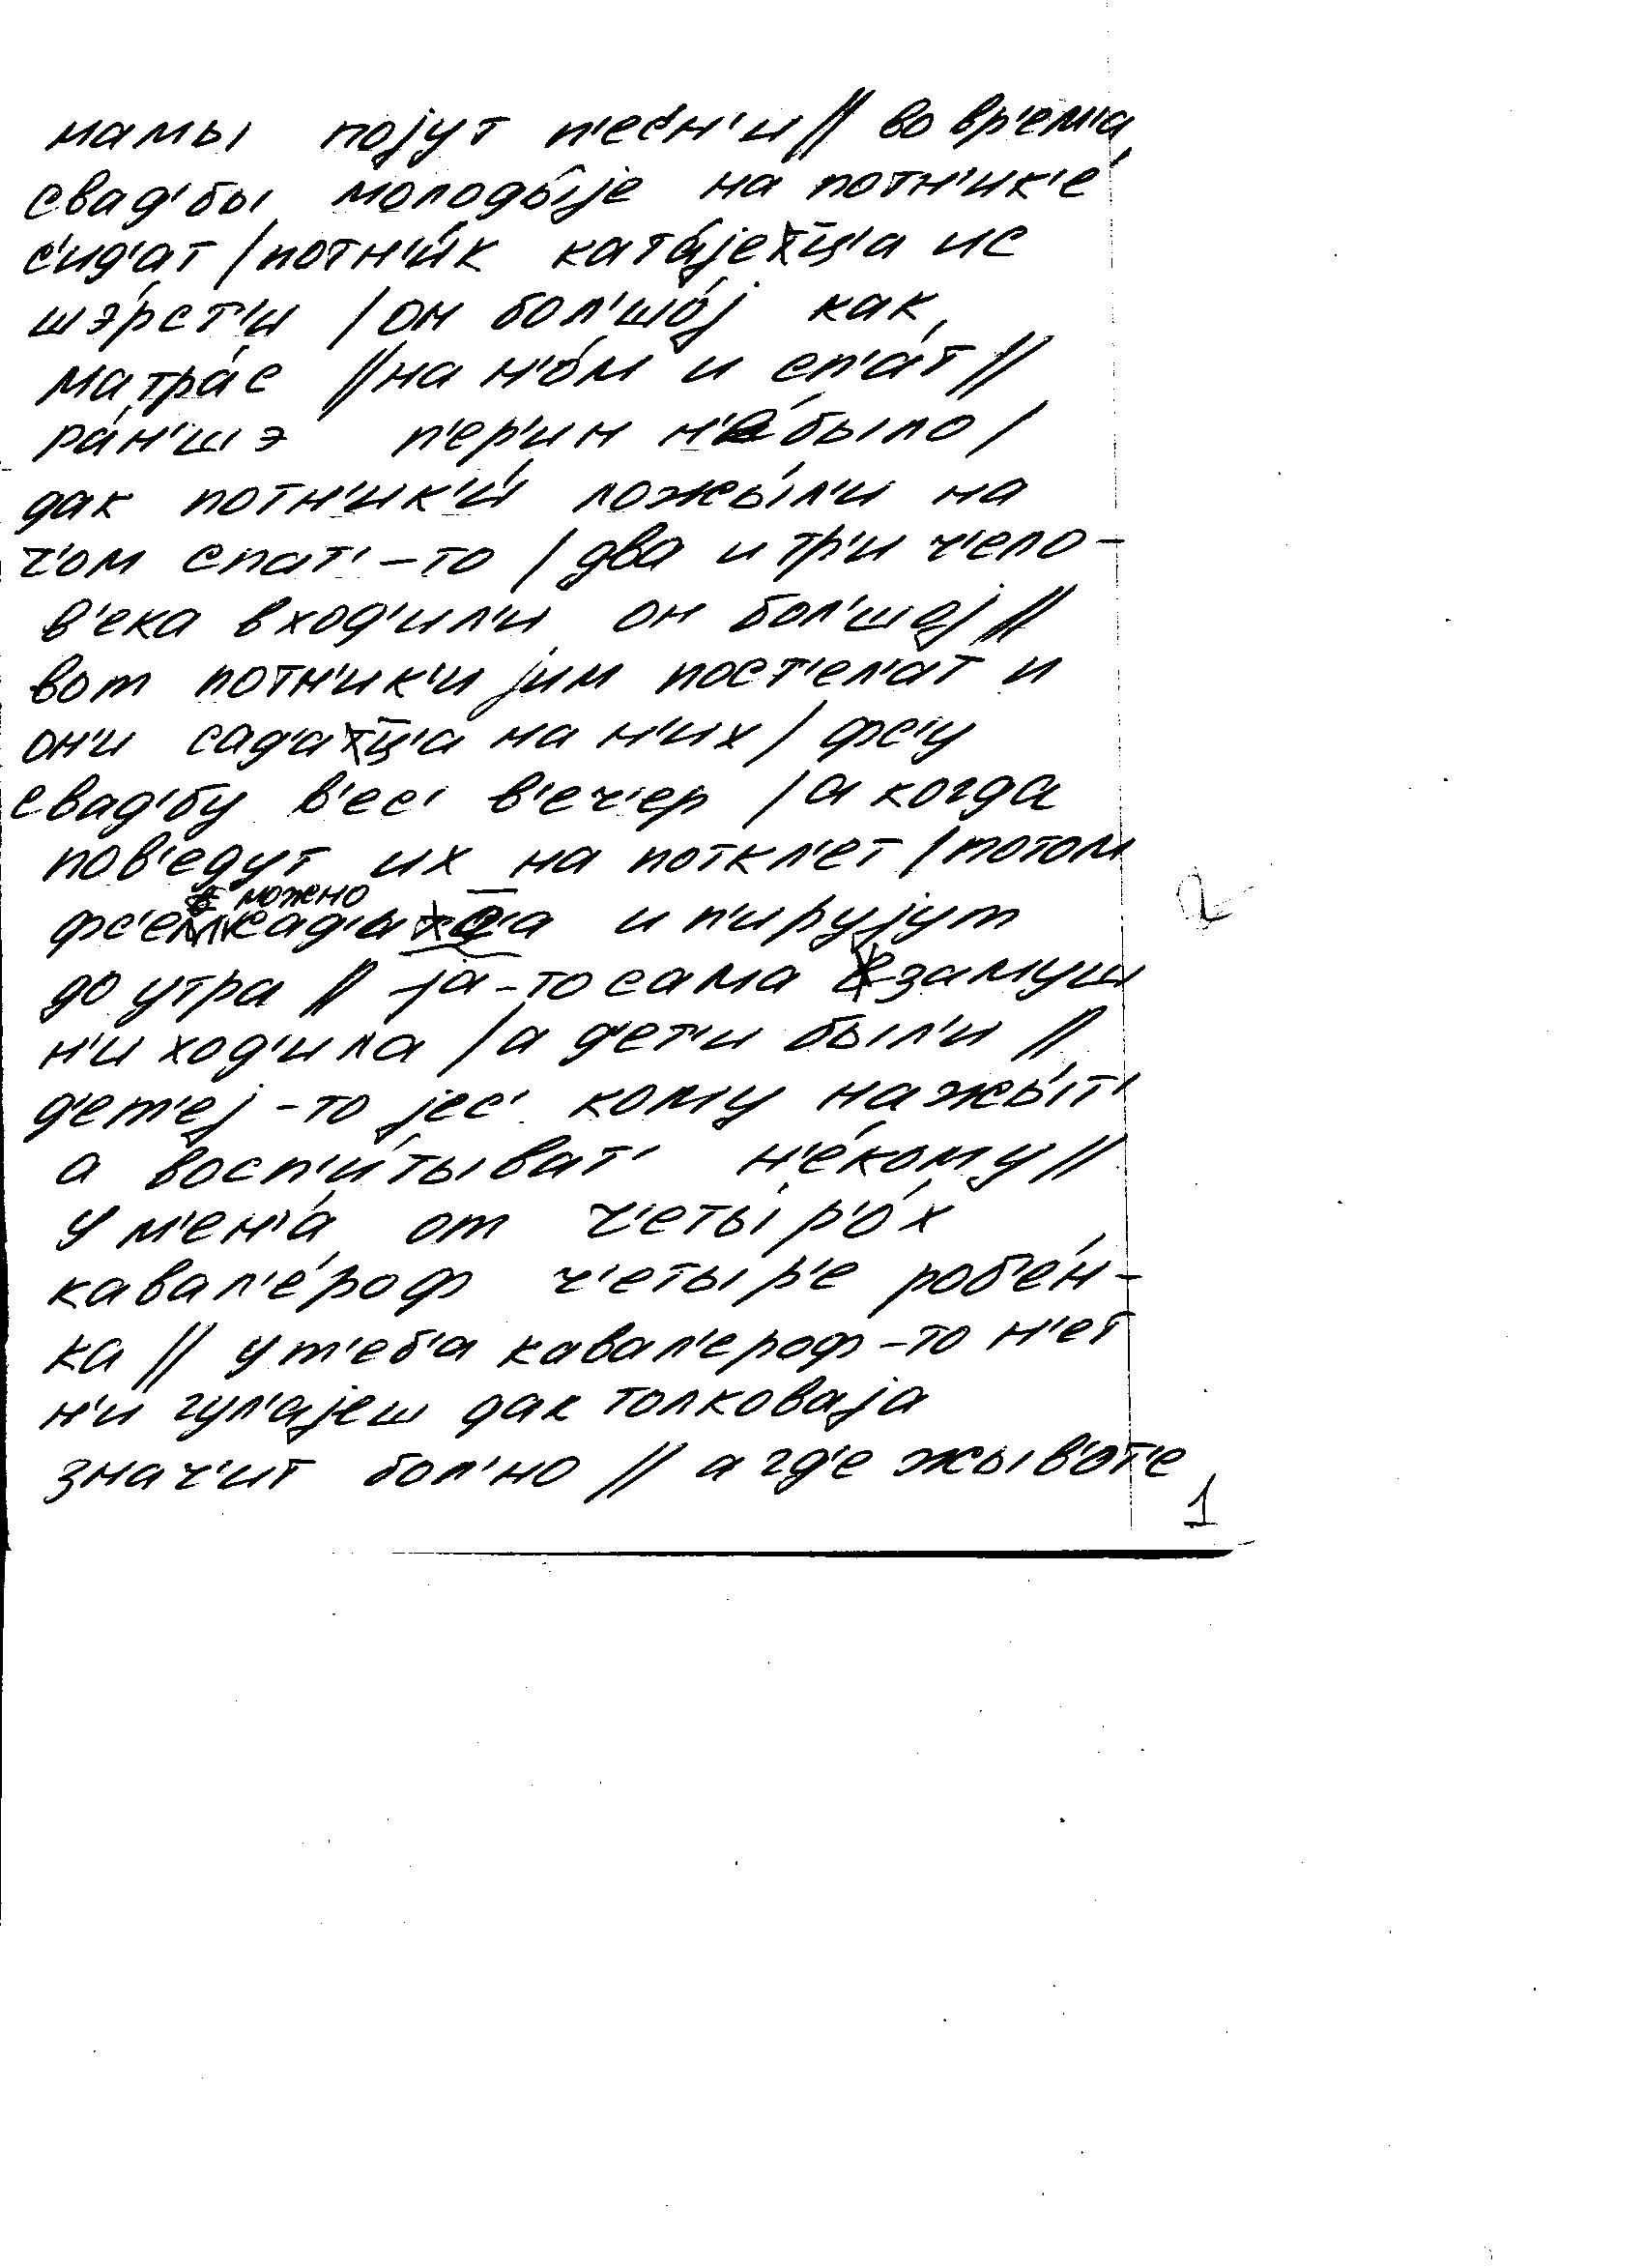 мамы појут п'ес'н'и // во вр'ем'а
свад'бы молоды́је на потн'ик'е́
с'ид'а́т / потн'и́к ката́јец̄'а ис
шэ́рст'и / он бол'шо́ј как
матра́с // на н'о́м и сп'а́т //
ра́н'шэ п'ер'ин н'е́ было /
дак потн'ик'и́ ложы́л'и на
ч'ом спат'-то / два и тр'и ч'ело-
в'ека входил'и он бол'шој //
вот потн'ик'и јим пост'ел'ат и
он'и сад'ац̄'а на н'их / фс'у
свад'бу в'ес' в'еч'ер / а когда
пов'едут их на поткл'ет / потом
можно
фс'ем сад'ац̄'а и п'ирујут
до утра // ја-то сама замуш
н'и ход'ила / а д'ет'и был'и //
д'ет'еј-то јес' кому нажы́т'
а восп'и́тыват' н'е́кому //
у м'ен'а́ от ч'етыр'о́х
кавал'е́роф ч'етыр'е роб'е́н-
ка // у т'еб'а кавал'ероф-то н'ет
н'и гул'ајеш дак толковаја
знач'ит бол'но // а гд'е жыв'от'е
2
1